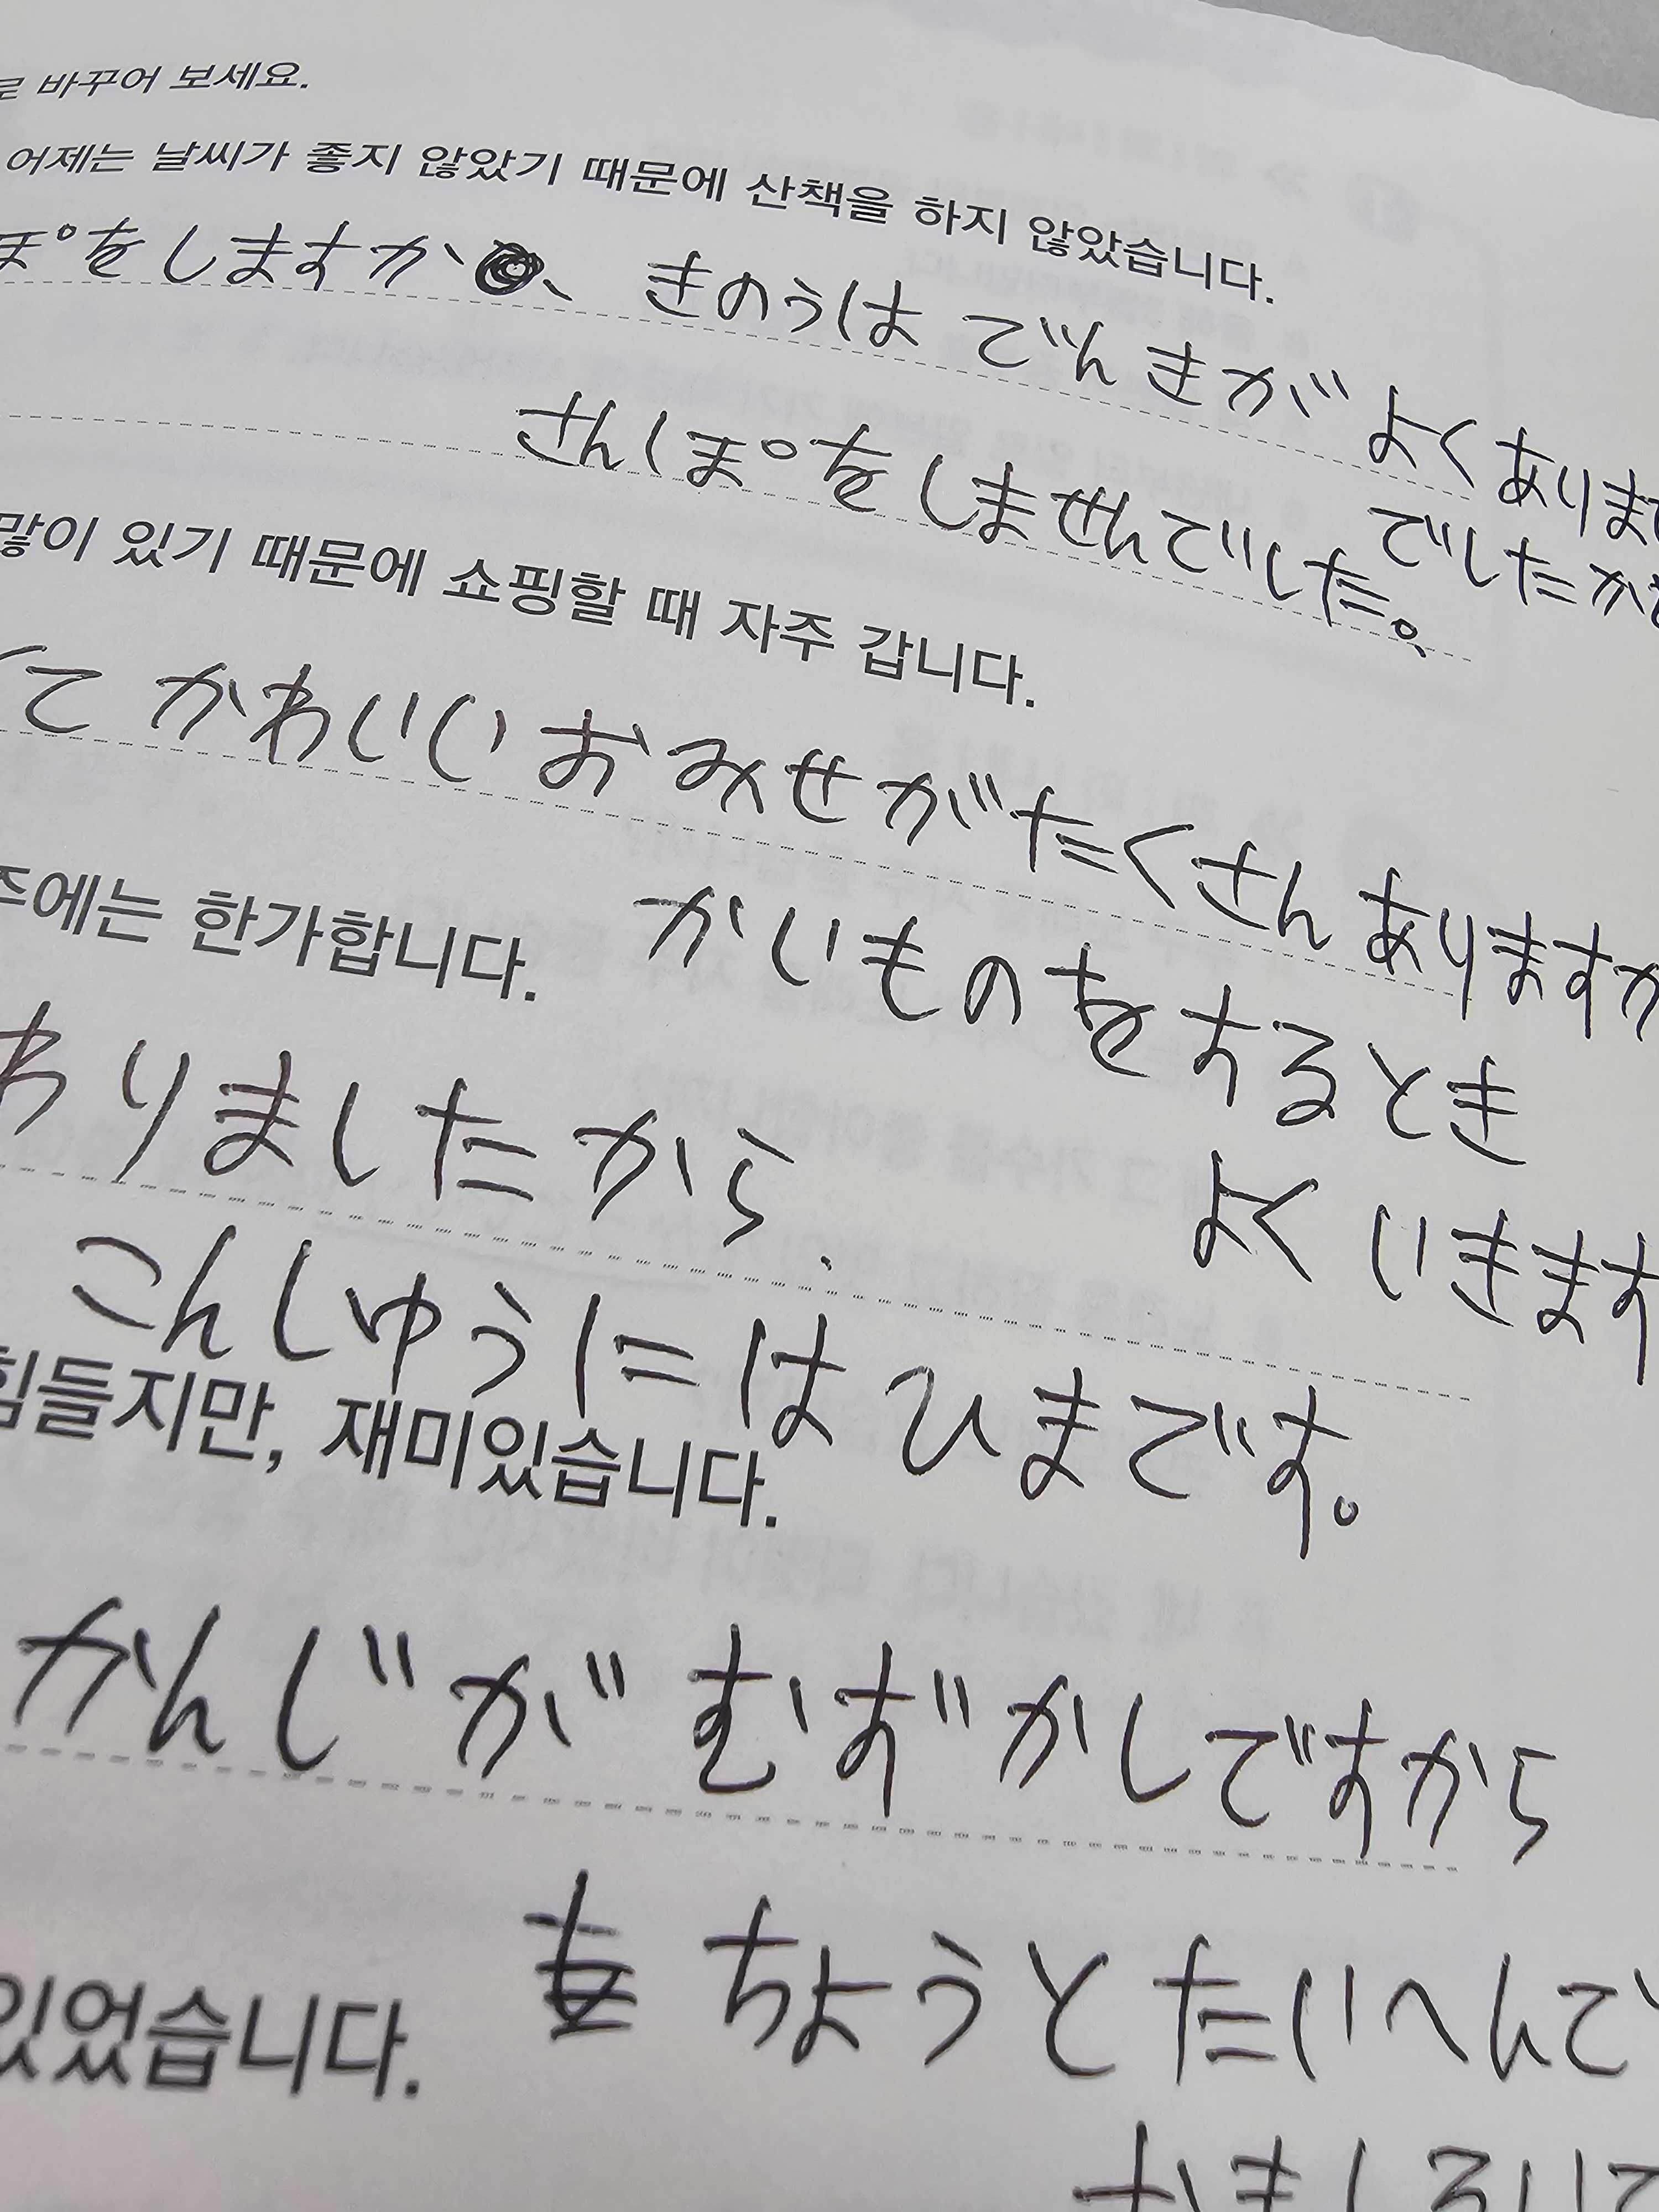 로 바꾸어 보세요.
어제는 날씨가 좋지 않았기 때문에 산책을 하지 않았습니다.
ぽをしますか、 きのうは でんきが よくありませ
でしたから
さんぽをしませんでした。
많이 있기 때문에 쇼핑할 때 자주 갑니다.
くて かわいい おみせが たくさん ありますか
주에는 한가합니다.
かいものをするとき
よく いきます
わりましたから
こんしゅうには ひまです。
힘들지만, 재미있습니다.
かんじが むずかしですから
있었습니다.
ちょうと たいへんで
おもしろいで